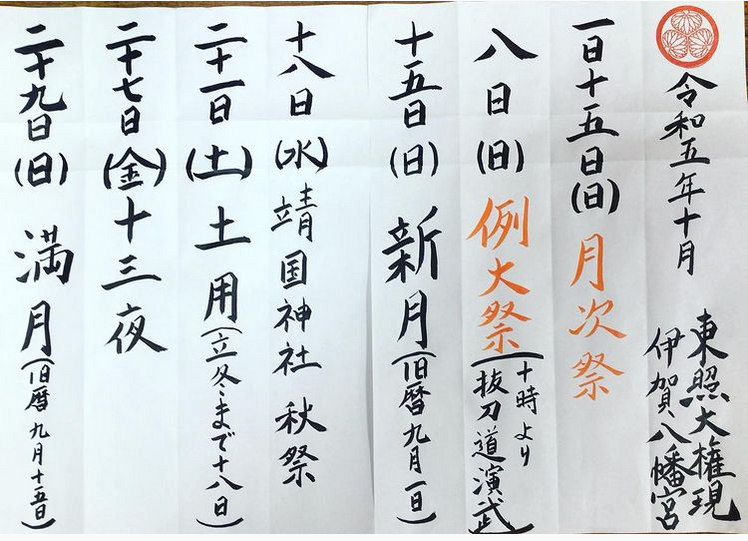 令和五年十月
東照大権現
伊賀八幡宮
一日十五日(日) 月次祭
八日(日) 例大祭(十時より
抜刀道演武)
十五日(日) 新月(旧暦九月一日)
十八日(水) 靖国神社 秋祭
二十一日(土) 土用(立冬まで十八日)
二十七日(金) 十三夜
二十九日(日) 満月(旧暦九月十五日)